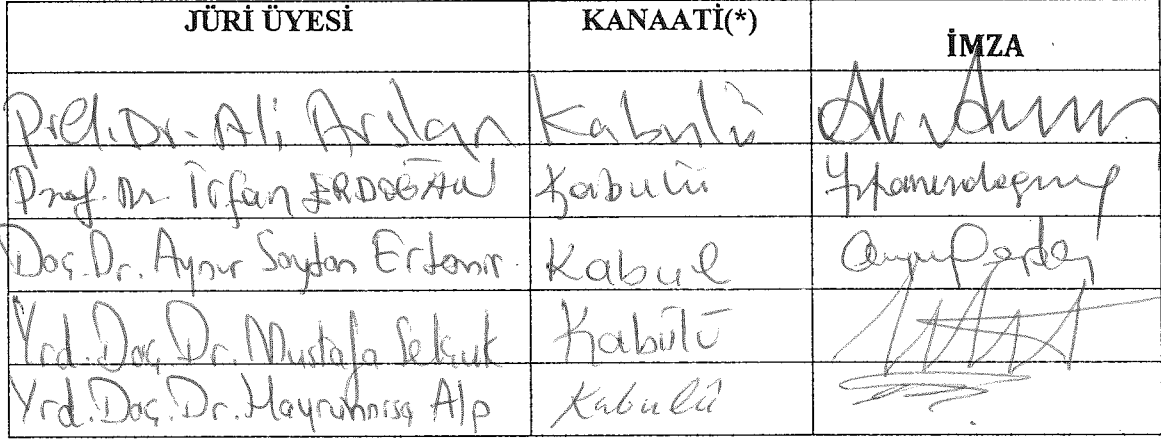 JÜRİ ÜYESİ KANAATİ(*) İMZA
Prof. Dr. Ali Arslan Kabulü
Prof. Dr. İrfan ERDOĞAN Kabulü
Doç. Dr. Aynur Soydan Erdemir Kabul
Yrd. Doç. Dr. Mustafa Selçuk Kabülü
Yrd. Doç. Dr. Hayrunnisa Alp Kabulü